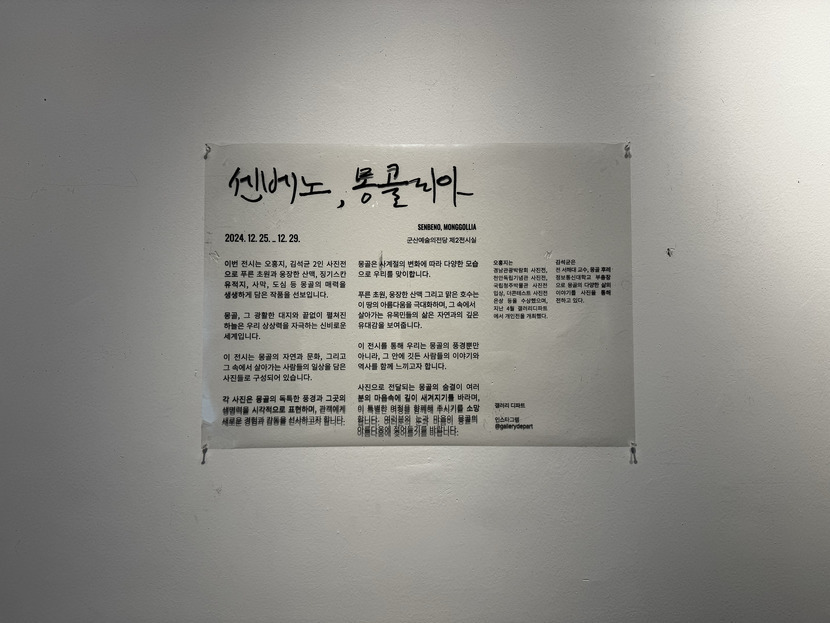 쎈베노, 몽골리아
SENBENO, MONGGOLLIA
2024. 12. 25. _ 12. 29.
군산예술의전당 제2전시실
이번 전시는 오홍지, 김석균 2인 사진전
으로 푸른 초원과 웅장한 산맥, 징기스칸
유적지, 사막, 도심 등 몽골의 매력을
생생하게 담은 작품을 선보입니다.
몽골, 그 광활한 대지와 끝없이 펼쳐진
하늘은 우리 상상력을 자극하는 신비로운
세계입니다.
이 전시는 몽골의 자연과 문화, 그리고
그 속에서 살아가는 사람들의 일상을 담은
사진들로 구성되어 있습니다.
각 사진은 몽골의 독특한 풍경과 그곳의
생명력을 시각적으로 표현하며, 관객에게
새로운 경험과 감동을 선사하고자 합니다.
몽골은 사계절의 변화에 따라 다양한 모습
으로 우리를 맞이합니다.
푸른 초원, 웅장한 산맥 그리고 맑은 호수는
이 땅의 아름다움을 극대화하며, 그 속에서
살아가는 유목민들의 삶은 자연과의 깊은
유대감을 보여줍니다.
이 전시를 통해 우리는 몽골의 풍경뿐만
아니라, 그 안에 깃든 사람들의 이야기와
역사를 함께 느끼고자 합니다.
사진으로 전달되는 몽골의 숨결이 여러
분의 마음속에 깊이 새겨지기를 바라며,
이 특별한 여정을 함께해 주시기를 소망
합니다. 여러분의 눈과 마음이 몽골의
아름다움에 젖어들기를 바랍니다.
오홍지는
경남관광박람회 사진전,
천안독립기념관 사진전,
국립청주박물관 사진전
입상, 더콘테스트 사진전
은상 등을 수상했으며,
지난 4월 갤러리디파트
에서 개인전을 개최했다.
김석균은
전 서해대 교수, 몽골 후레
정보통신대학교 부총장
으로 몽골의 다양한 삶의
이야기를 사진을 통해
전하고 있다.
갤러리 디파트
인스타그램
@gallerydepart